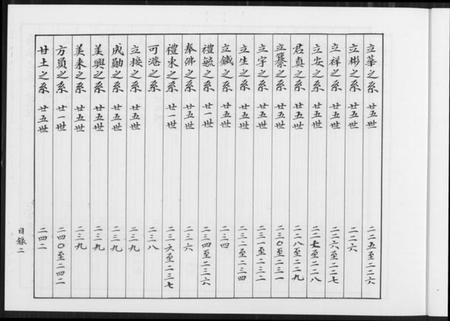 立華之系 廿五世 二二五至二二六
立彬之系 廿五世 二二六
立祥之系 廿五世 二二六至二二七
立安之系 廿五世 二二七至二二八
君真之系 廿五世 二二八至二二九
立纂之系 廿五世 二三〇至二三一
立宇之系 廿五世 二三一至二三二
立生之系 廿五世 二三二至二三四
立鐵之系 廿五世 二三四
禮毓之系 廿一世 二三四至二三六
奉佛之系 廿五世 二三六
禮東之系 廿一世 二三六至二三七
可港之系 二三八
立接之系 廿五世 二三九
成勛之系 廿五世 二三九
美興之系 廿五世 二三九
美来之系 廿五世 二三九
方員之系 廿一世 二四〇至二四二
廿土之系 廿五世 二四二
目錄二